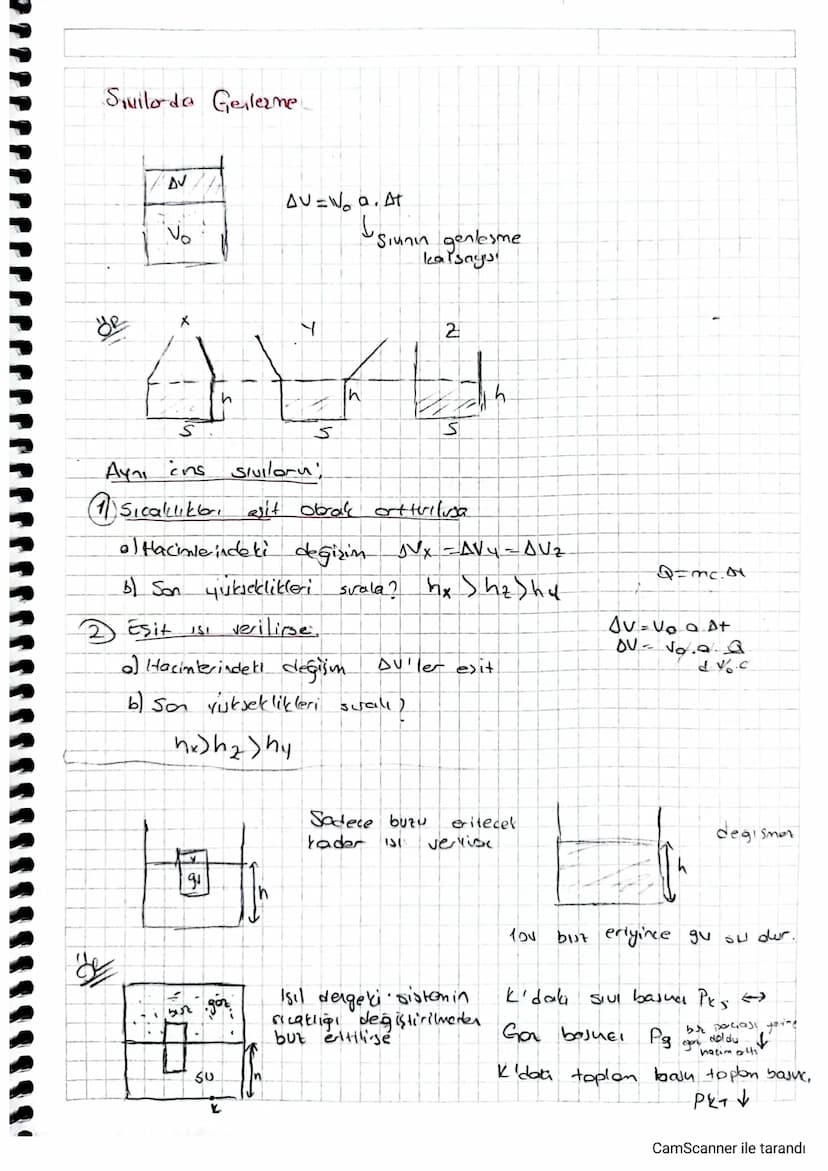 Sıvılarda Genleşme
ΔV
V₀
ΔV = V₀ a. Δt
↓ Sıvının genleşme
katsayısı
ÖR
X
Y
Z
h
h
h
S
S
S
Aynı cins sıvıların;
1) Sıcaklıkları eşit olarak arttırılırsa
a) Hacimlerindeki değişim ΔVx = ΔVy = ΔVz
b) Son yükseklikleri sırala? hx > hz > hy
Q = mc. Δt
2) Eşit ısı verilirse,
ΔV = V₀ a. Δt
ΔV = V₀. a. Q
d V₀. c
a) Hacimlerindeki değişim ΔV'ler eşit
b) Son yükseklikleri sırala?
hx > hz > hy
Sadece buzu eritecek
kadar ısı verilse
V
9V
h
h
değişmez
10V buz eriyince 9V su olur.
ÖR
buz
gaz
su
h
K
Isıl dengeki sistemin
sıcaklığı değiştirilmeden
buz eritilirse
K'daki sıvı basıncı PKS ↔
Gaz basıncı Pg
gaz doldu
hacim arttı ↓
K'daki toplam basın toplam basınç,
PKT ↓
CamScanner ile tarandı